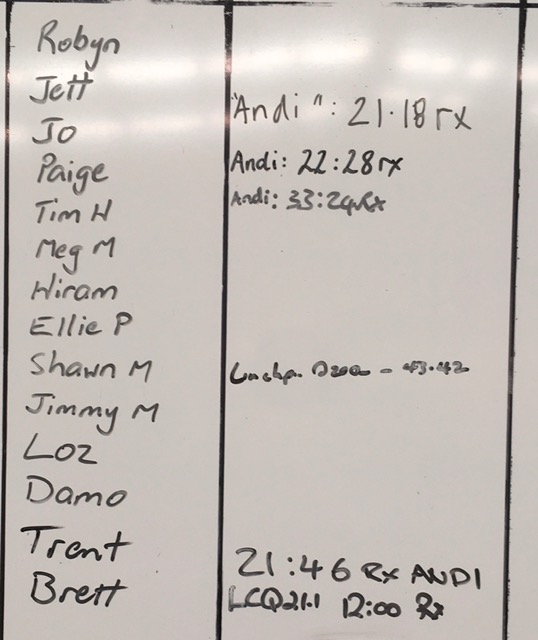 Robyn
Jett
"Andi": 21.18 rx
Jo
Paige
Andi: 22:28 rx
Tim H
Andi: 33:24 Rx
Meg M
Hiram
Ellie P
Shawn M
- 43.42
Jimmy M
Loz
Damo
Trent
21:46 Rx ANDI
Brett
LCQ21.1 12:00 Rx